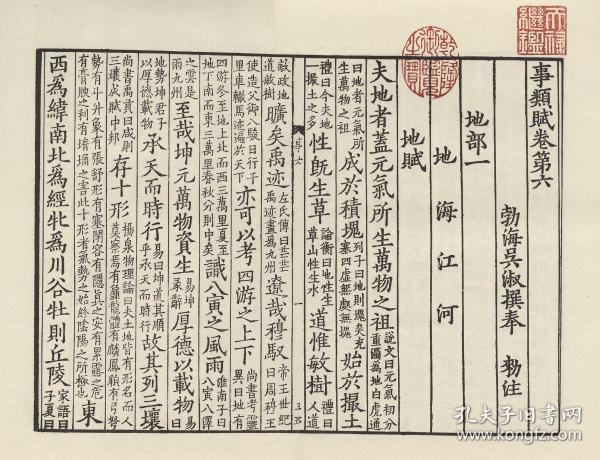 事類賦卷第六
勃海吳淑撰奉 勑注
地部一
地 海 江 河
地賦
夫地者蓋元氣所生萬物之祖說文曰元氣初分重濁為地白虎通
曰地者元氣所生萬物之祖成於積塊列子曰地則塊矣充塞四虛無處無塊始於撮土
禮曰今夫地一撮土之多性旣生草論衡曰地性生草山性生木道惟敏樹禮曰人道
敏政地道敏樹曠矣禹迹左氏傳曰芒芒禹迹畫爲九州遼哉穆馭帝王世紀曰周穆王
使造父御八駿日行千里車轍馬迹遍於天下亦可以考四游之上下尚書考靈異曰地有
四游冬至地上北而西三萬里夏至地下南而東三萬里春秋分則中矣識八寅之風雨淮南子曰八寅八澤
之雲是雨九州至哉坤元萬物資生易坤彖辭厚德以載物易曰
地勢坤君子以厚德載物承天而時行易曰坤道其順乎承天而時行故其列三壤
尚書禹貢曰咸則三壤成賦中邦存十形楊泉物理論曰夫土地皆有形名而人莫察焉有龜龍體有麟鳳貌有弓弩
勢有斗升象有張舒形有塞閉容有隱真之安有累露之危有膏腴之利有塉埆之害此十形者氣勢之始終陰陽之所極也東
西爲緯南北爲經牝爲川谷牡則丘陵家語曰子夏曰
孔夫子旧书网
www.kongfz.com